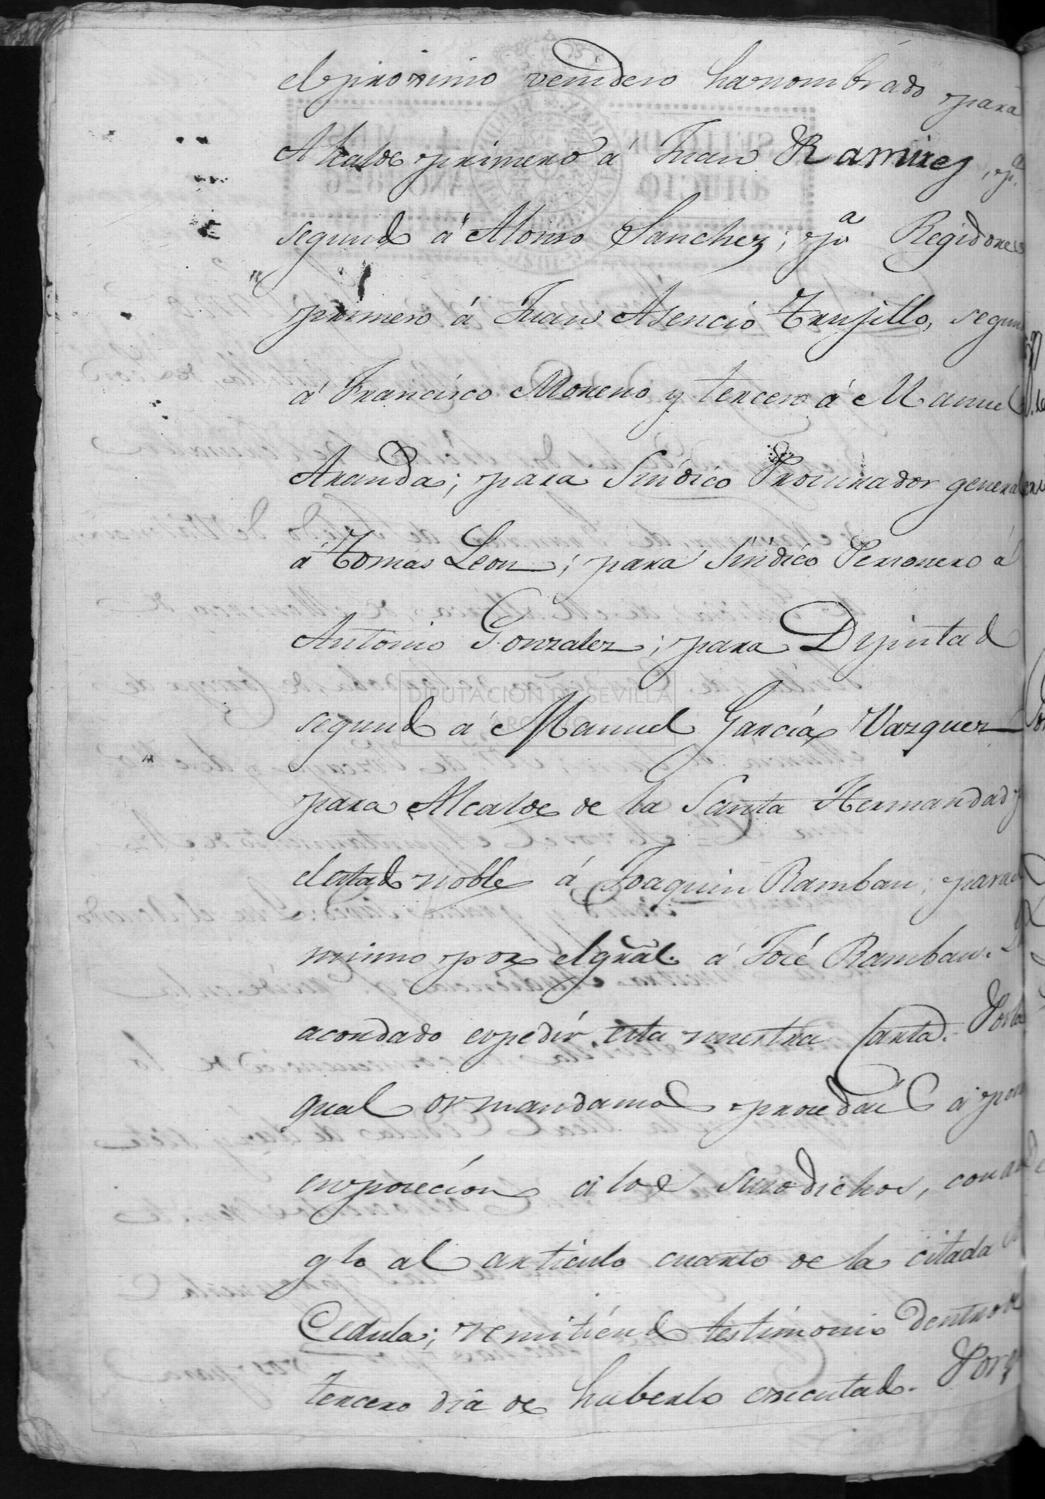 el procsimo venidero ha nombrado para
Alcalde primero á Juan Ramirez, pª
segundo á Alonso Sanchez; pª Regidores
primero á Juan Asencio Trujillo, segun
á Francisco Moreno y tercero á Manuel
Aranda; para Síndico Procurador general
á Tomas Leon; para Síndico Personero á
Antonio Gonzalez; para Diputado
segundo á Manuel García Vazquez
para Alcalde de la Santa Hermandad p
el estado noble á Joaquin Rambau, para
mismo por el gral á José Rambau.
acordado expedir esta nuestra Carta. Por la
qual os mandamos procedais á pon
en posecion á los susodichos, con
glo al artículo cuarto de la citada
Cedula; remitiendo testimonio dentro de
tercero dia de haberlo executado. Por q
DIPUTACION DE SEVILLA